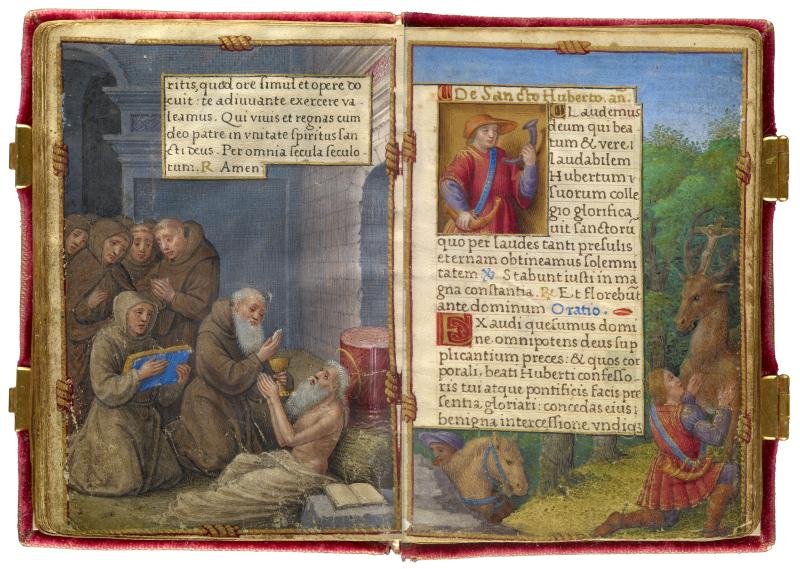 ritis, quod ore simul et opere do
cuit: te adiuuante exercere va
leamus. Qui viuis et regnas cum
deo patre in vnitate spiritus san
cti deus. Per omnia secula seculo
rum. R Amen
De Sancto Huberto. añ.
Laudemus
deum qui bea
tum & vere l
audabilem
Hubertum i
suorum colle
gio glorifica
uit sanctorũ
quo per laudes tanti presulis
eternam obtineamus solemni
tatem V Stabunt iusti in ma
gna constantia. R Et florebũt
ante dominum Oratio.
EXaudi quesumus domi
ne omnipotens deus sup
plicantium preces: & quos cor
porali, beati Huberti confesso
ris tui atque pontificis facis pre
sentia gloriari: concedas eius
benigna intercessione vndiq3